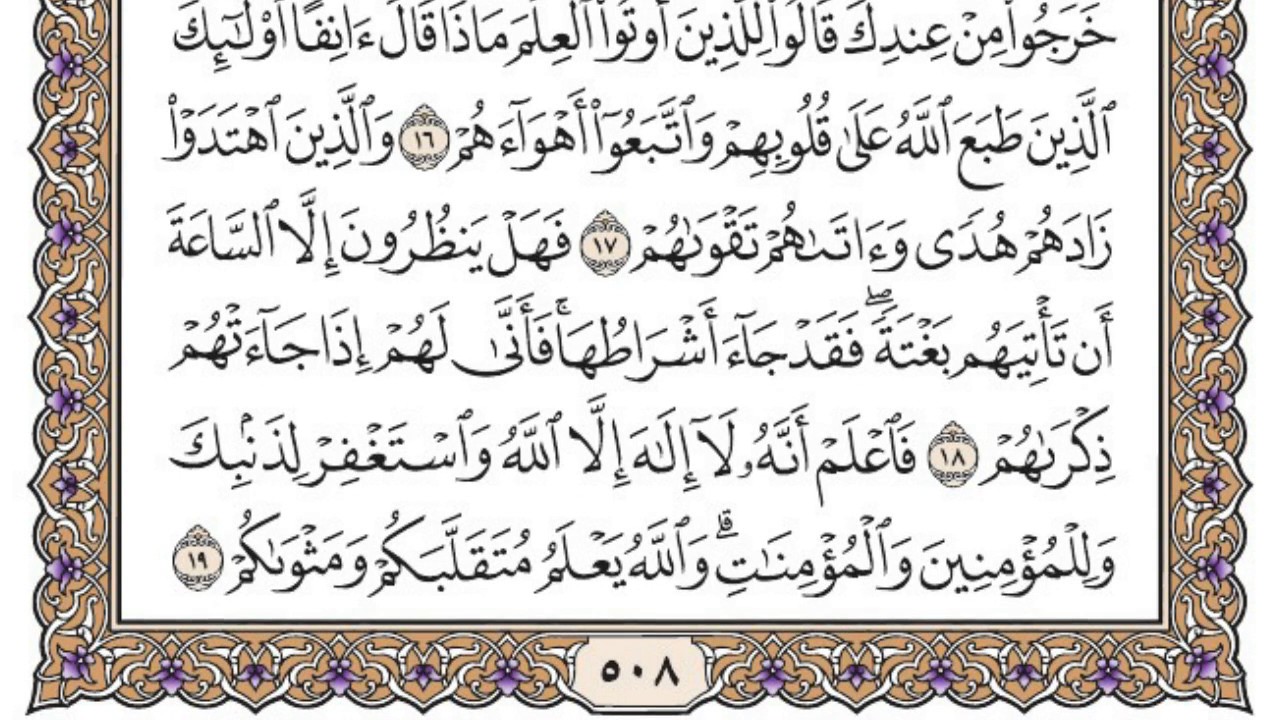 خَرَجُوا۟ مِنْ عِندِكَ قَالُوا۟ لِلَّذِينَ أُوتُوا۟ ٱلْعِلْمَ مَاذَا قَالَ ءَانِفًا أُو۟لَٰٓئِكَ
ٱلَّذِينَ طَبَعَ ٱللَّهُ عَلَىٰ قُلُوبِهِمْ وَٱتَّبَعُوٓا۟ أَهْوَآءَهُمْ ١٦ وَٱلَّذِينَ ٱهْتَدَوْا۟
زَادَهُمْ هُدًى وَءَاتَىٰهُمْ تَقْوَىٰهُمْ ١٧ فَهَلْ يَنظُرُونَ إِلَّا ٱلسَّاعَةَ
أَن تَأْتِيَهُم بَغْتَةً ۖ فَقَدْ جَآءَ أَشْرَاطُهَا ۚ فَأَنَّىٰ لَهُمْ إِذَا جَآءَتْهُمْ
ذِكْرَىٰهُمْ ١٨ فَٱعْلَمْ أَنَّهُۥ لَآ إِلَٰهَ إِلَّا ٱللَّهُ وَٱسْتَغْفِرْ لِذَنۢبِكَ
وَلِلْمُؤْمِنِينَ وَٱلْمُؤْمِنَٰتِ ۗ وَٱللَّهُ يَعْلَمُ مُتَقَلَّبَكُمْ وَمَثْوَىٰكُمْ ١٩
٥٠٨